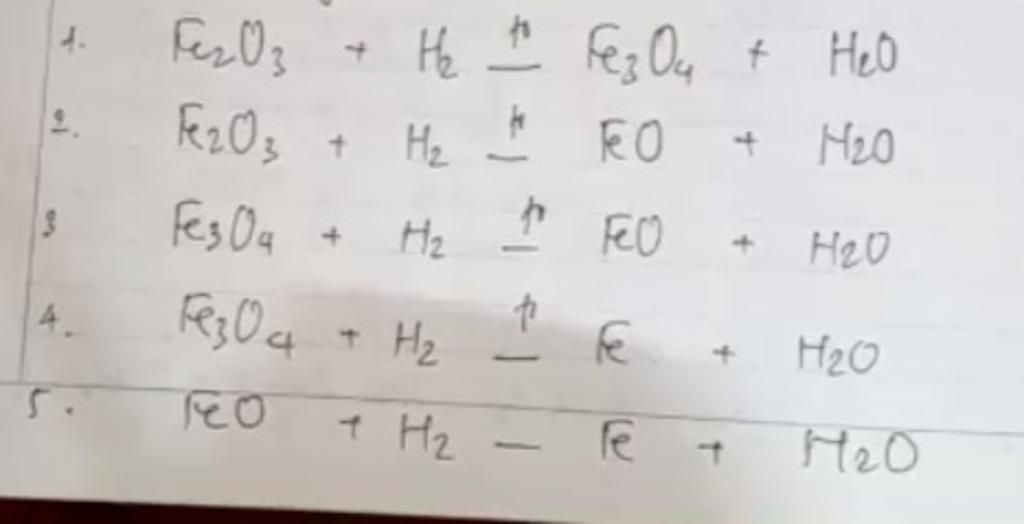 1. Fe2O3 + H2 — Fe3O4 + H2O
2. Fe2O3 + H2 — FeO + H2O
3 Fe3O4 + H2 — FeO + H2O
4. Fe3O4 + H2 — Fe + H2O
5. FeO + H2 — Fe + H2O